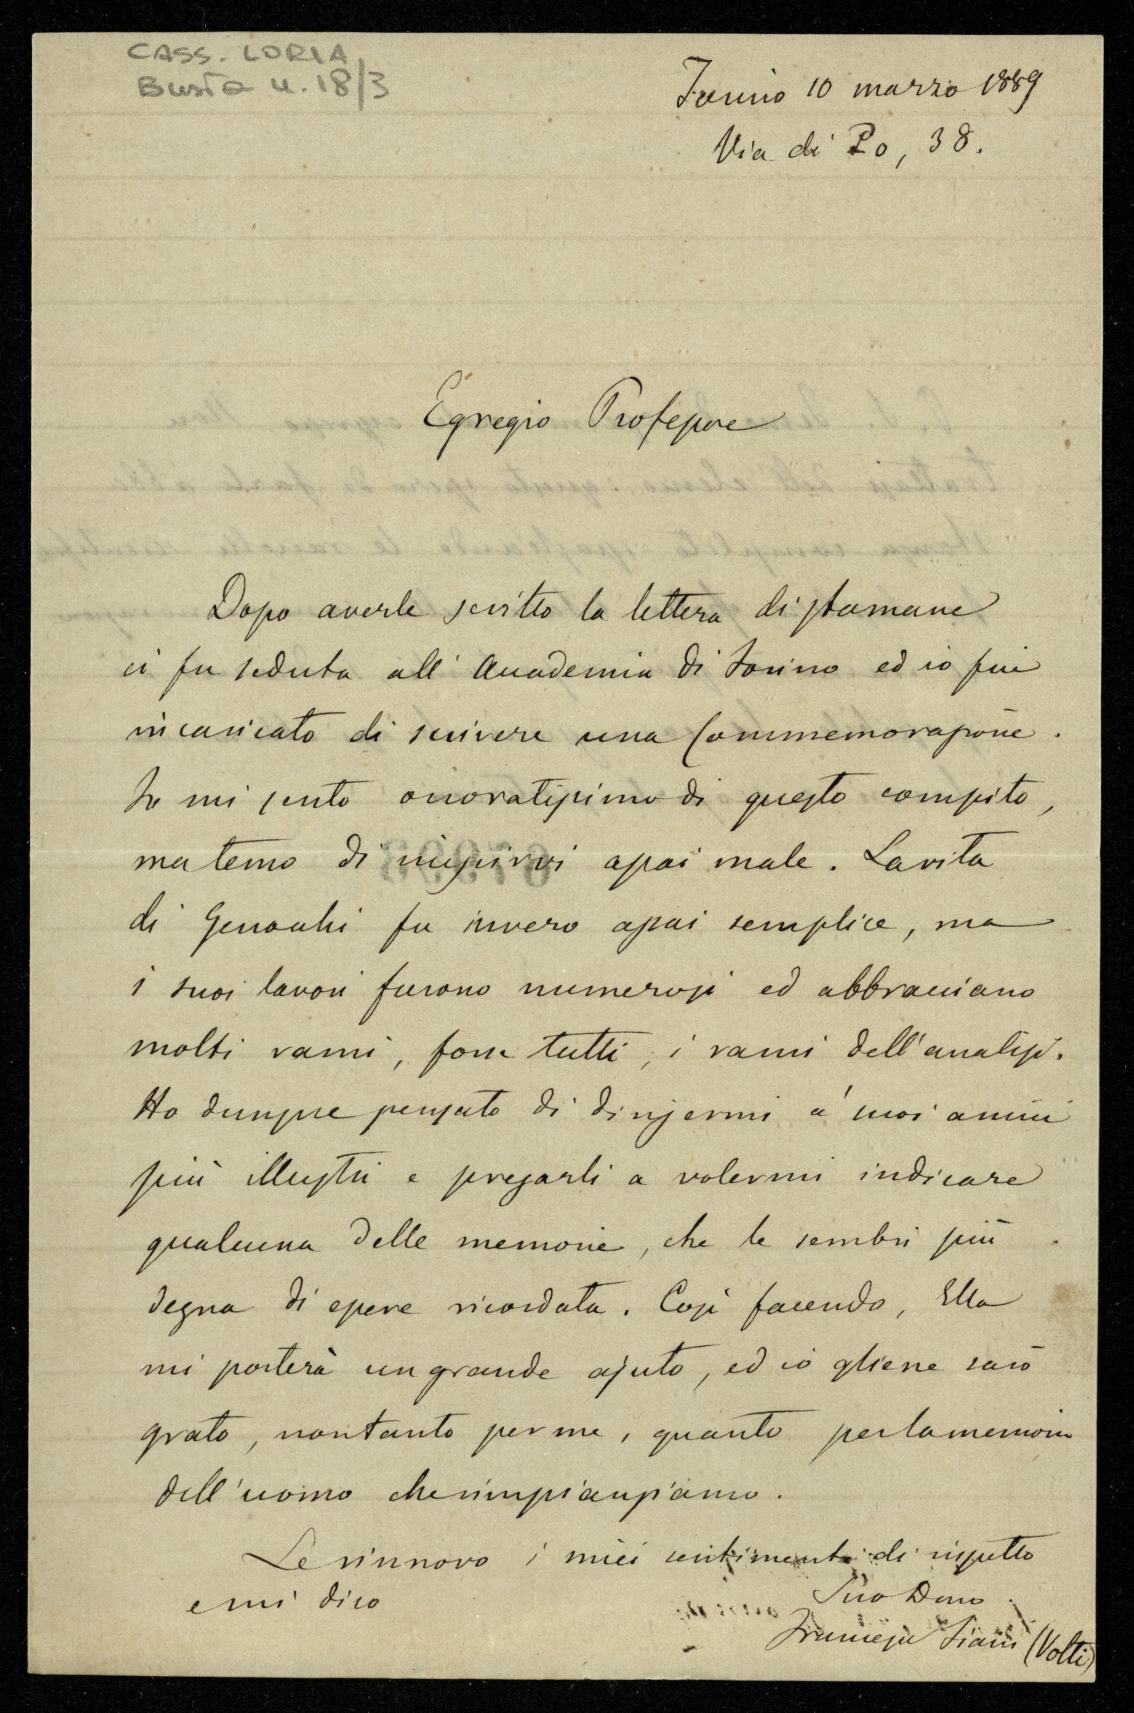 CASS. LORIA
Busta n. 18/3
Torino 10 marzo 1889
Via di Po, 38.
Egregio Professore
Dopo averle scritto la lettera di stamane
ci fu seduta all' Accademia di Torino ed io fui
incaricato di scrivere una Commemorazione.
Io mi sento onoratissimo di questo compito,
ma temo di riuscirvi assai male. La vita
di Genocchi fu invero assai semplice, ma
i suoi lavori furono numerosi ed abbracciano
molti rami, forse tutti, i rami dell'analisi.
Ho dunque pensato di dirigermi a' suoi amici
più illustri e pregarli a volermi indicare
qualcuna delle memorie, che le sembri più
degna di essere ricordata. Così facendo, Ella
mi porterà un grande ajuto, ed io gliene sarò
grato, non tanto per me, quanto per la memoria
dell'uomo che rimpiangiamo.
Le rinnovo i miei sentimenti di rispetto
e mi dico
Suo Devo
Francesco Siacci (Volti)